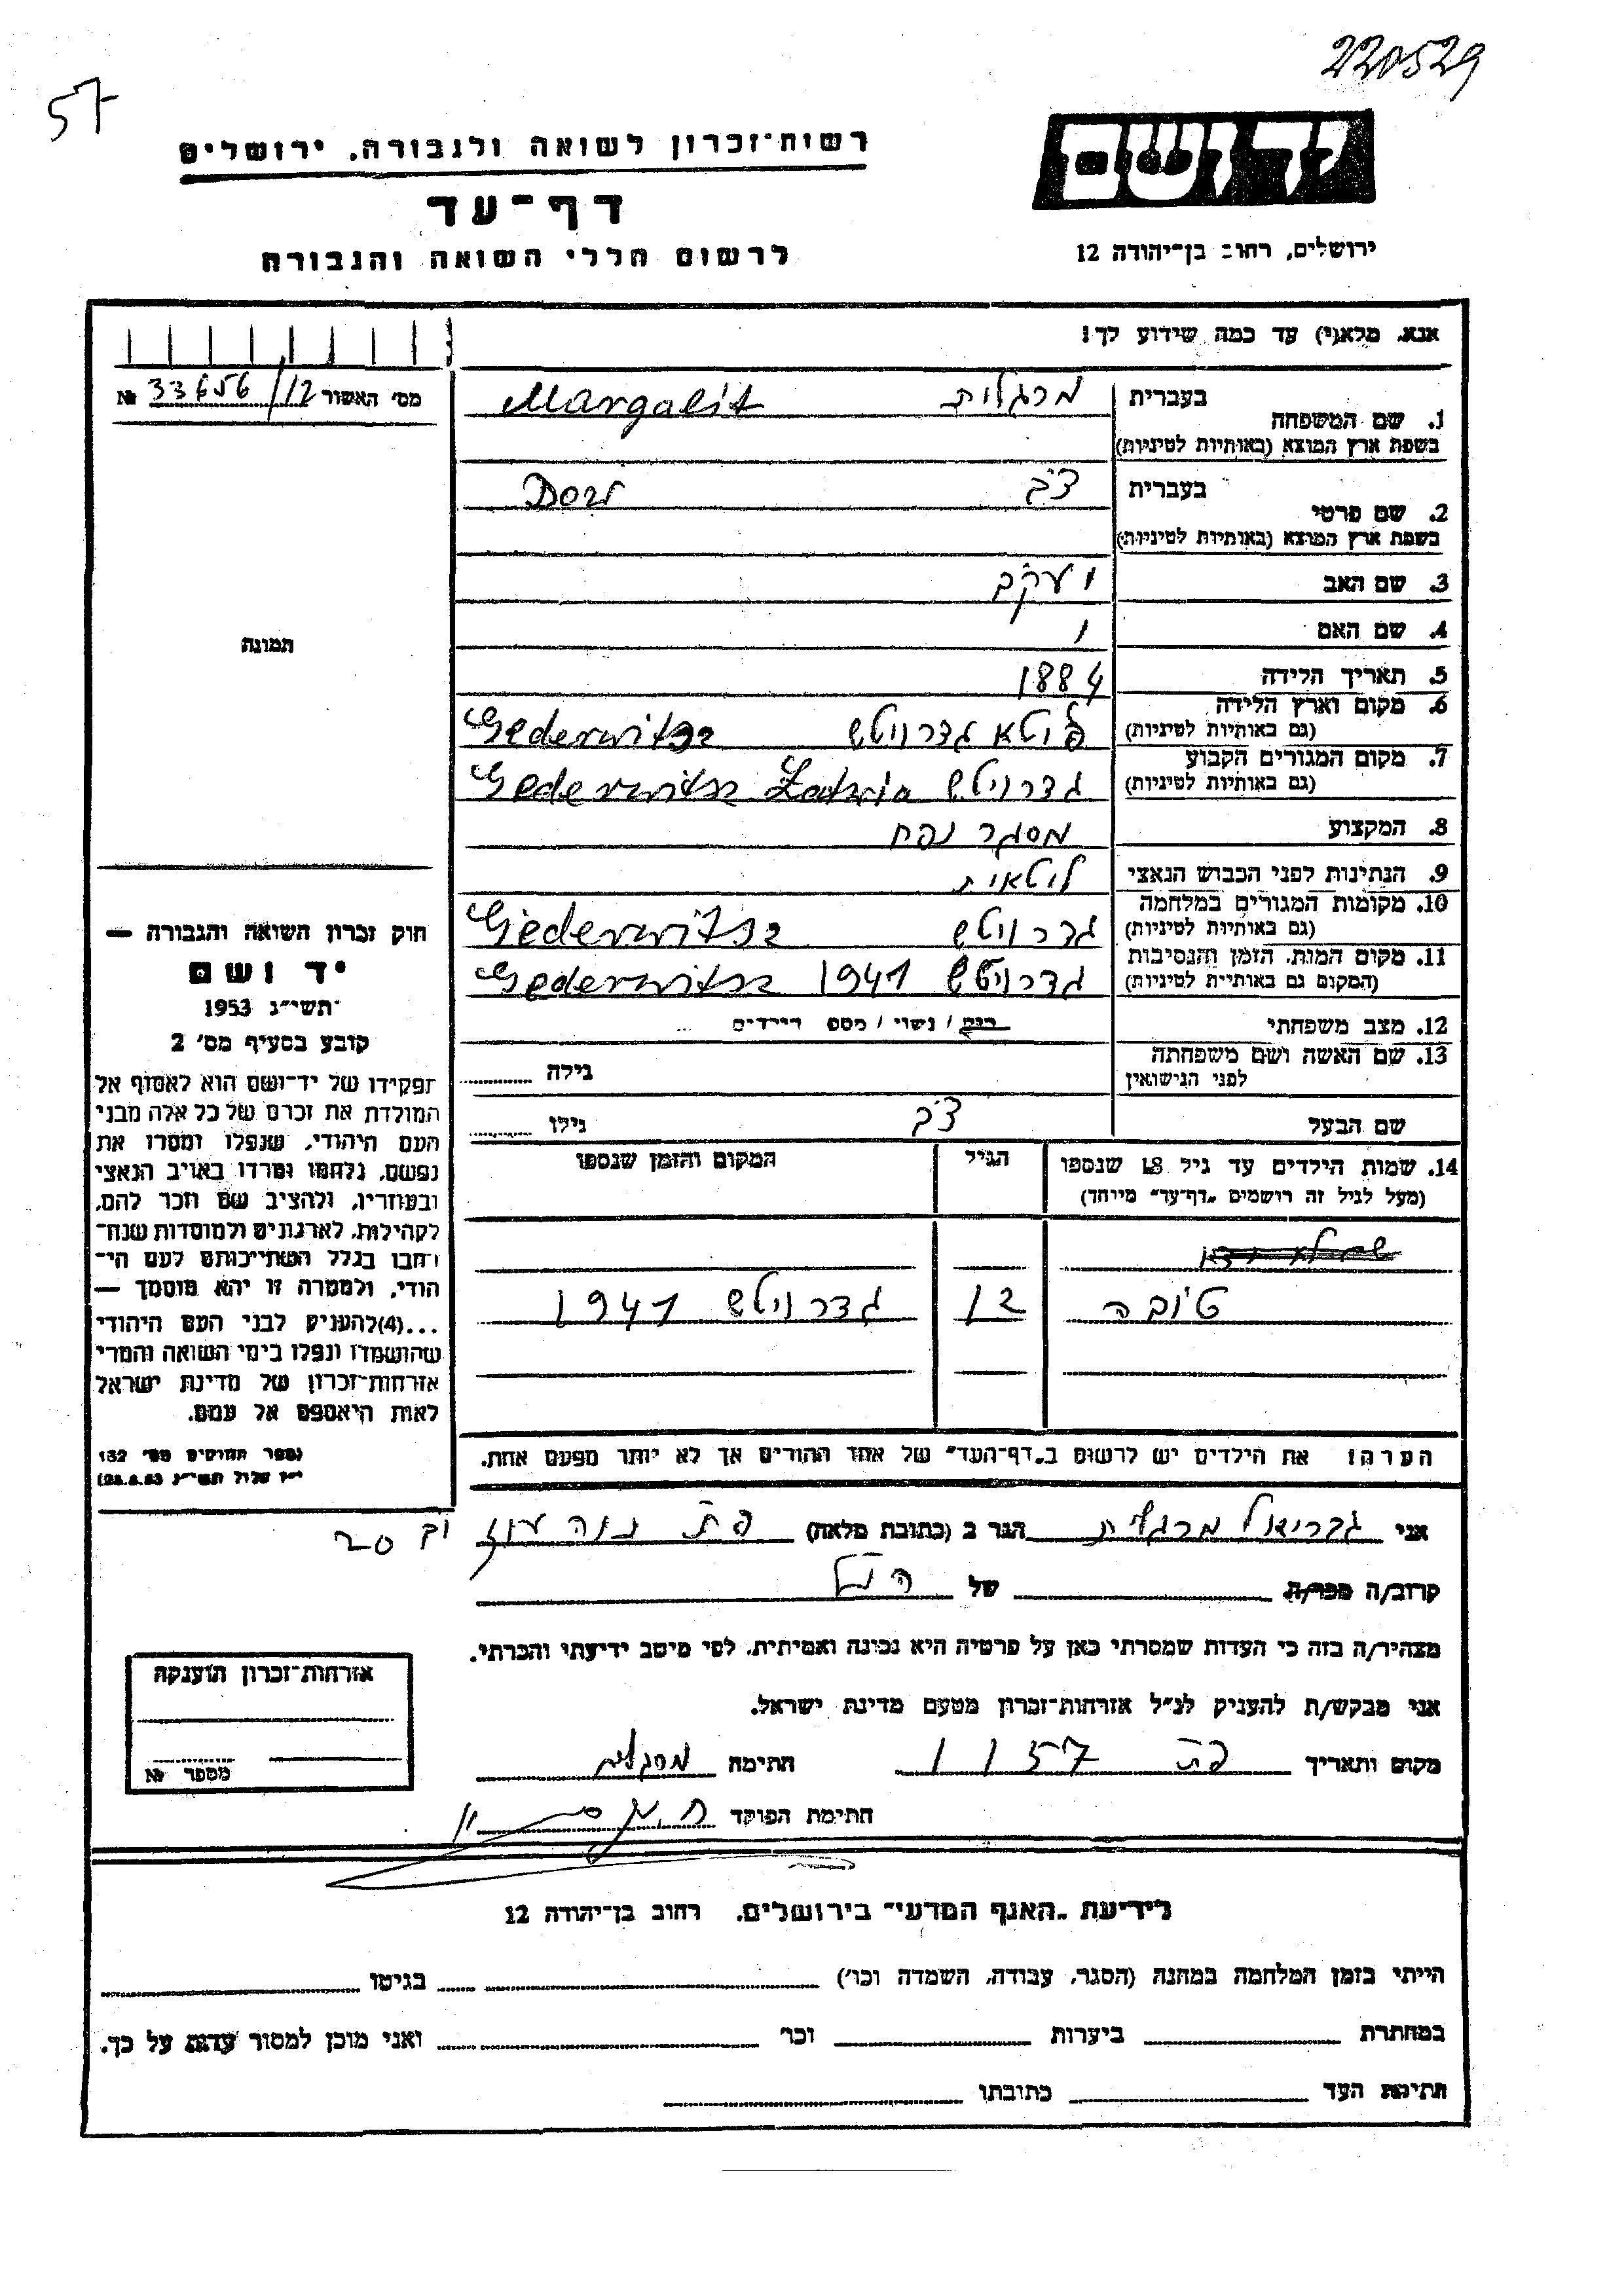 220529
57
רשות־זכרון לשואה ולגבורה, ירושלים
דף־עד
לרשום חללי השואה והגבורה
יד ושם
ירושלים, רחוב בן־יהודה 12
אנא, מלא(י) עד כמה שידוע לך!
מס׳ האשור 33656/12 №
תמונה
1. שם המשפחה
בעברית מרגלית Margalit
בשפת ארץ המוצא (באותיות לטיניות)
2. שם פרטי
בעברית
בשפת ארץ המוצא (באותיות לטיניות)
3. שם האב יעקב
4. שם האם /
5. תאריך הלידה 1884
6. מקום וארץ הלידה ליטא גדרויטש Gederwitsz
(גם באותיות לטיניות)
7. מקום המגורים הקבוע גדרויטש Gederwitsz
(גם באותיות לטיניות)
8. המקצוע מסגר נפח
9. הנתינות לפני הכבוש הנאצי ליטאית
10. מקומות המגורים במלחמה גדרויטש Giederwitsz
(גם באותיות לטיניות)
11. מקום המות, הזמן והנסיבות גדרויטש 1941 Gederwitsz
(המקום גם באותיות לטיניות)
12. מצב משפחתי רוק / נשוי / מספר הילדים
13. שם האשה ושם משפחתה גילה
לפני הנישואין
שם הבעל גילו
14. שמות הילדים עד גיל 18 שנספו הגיל המקום והזמן שנספו
(מעל לגיל זה רושמים „דף־עד״ מייחד)
טובה 12 גדרויטש 1941
הערה! את הילדים יש לרשום ב„דף־העד״ של אחד ההורים אך לא יותר מפעם אחת.
חוק זכרון השואה והגבורה —
יד ושם
תשי״ג 1953
קובע בסעיף מס׳ 2
תפקידו של יד־ושם הוא לאסוף אל
המולדת את זכרם של כל אלה מבני
העם היהודי, שנפלו ומסרו את
נפשם, נלחמו ומרדו באויב הנאצי
ובעוזריו, ולהציב שם וזכר להם,
לקהילות, לארגונים ולמוסדות שנח־
רבו בגלל השתייכותם לעם הי־
הודי, ולמטרה זו יהא מוסמך —
...(4)להעניק לבני העם היהודי
שהושמדו ונפלו בימי השואה והמרי
אזרחות־זכרון של מדינת ישראל
לאות היאספם אל עמם.
(ספר החוקים מס׳ 132
י״ז אלול תשי״ג 28.8.53)
אני גבריאל מרגלית הגר ב (כתובת מלאה) פת נוה עוז 20
קרוב/ה מכר/ה של
מצהיר/ה בזה כי העדות שמסרתי כאן על פרטיה היא נכונה ואמיתית, לפי מיטב ידיעתי והכרתי.
אני מבקש/ת להעניק לנ״ל אזרחות־זכרון מטעם מדינת ישראל.
מקום ותאריך פת 57 חתימה
חתימת הפוקד
אזרחות־זכרון הוענקה
מספר №
לידיעת „האגף המדעי״ בירושלים, רחוב בן־יהודה 12
הייתי בזמן המלחמה במחנה (הסגר, עבודה, השמדה וכו׳) בגיטו
במחתרת ביערות וכו׳ ואני מוכן למסור עדות על כך.
חתימת העד כתובתו